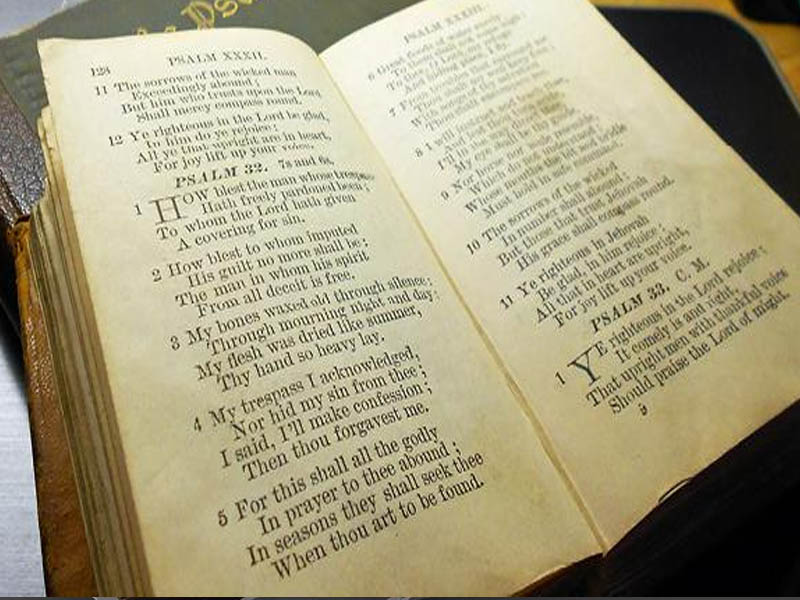 Ps
128 PSALM XXXII.
11 The sorrows of the wicked man
Exceedingly abound;
But him who trusts upon the Lord
Shall mercy compass round.
12 Ye righteous in the Lord be glad,
In him do ye rejoice:
All ye that upright are in heart,
For joy lift up your voice.
PSALM 32. 7s and 6s.
1 HOW blest the man whose trespass
Hath freely pardoned been;
To whom the Lord hath given
A covering for sin.
2 How blest to whom imputed
His guilt no more shall be;
The man in whom his spirit
From all deceit is free.
3 My bones waxed old through silence;
Through mourning night and day:
My flesh was dried like summer,
Thy hand so heavy lay.
4 My trespass I acknowledged,
Nor hid my sin from thee;
I said, I'll make confession;
Then thou forgavest me.
5 For this shall all the godly
In prayer to thee abound;
In seasons they shall seek thee
When thou art to be found.
PSALM XXXIII.
6 Great floods
To them shall
To thee
And hiding place
7 From
With songs
Thou shalt
8 I will
And
I'll
My eye shall be thy
9 Nor horse nor
Which do not
Whose mouths the bit and bridle
Must hold in
10 The sorrows of the wicked
In number shall abound;
But those that trust Jehovah
His grace shall compass round.
11 Ye righteous in Jehovah
Be glad, in him rejoice;
All that in heart are upright,
For joy lift up your voice.
PSALM 33. C. M.
1 YE righteous in the Lord rejoice;
It comely is and right,
That upright men with thankful voice
Should praise the Lord of might.
5